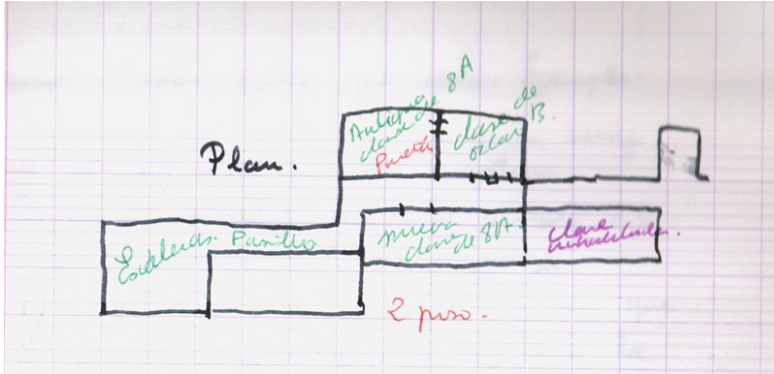 Plan.
Antigua
clase de 8A
Puerta
clase de
octavo B.
Escaleras. Pasillo
nueva
clase
de 8A
clase
inhabilitada.
2 piso.